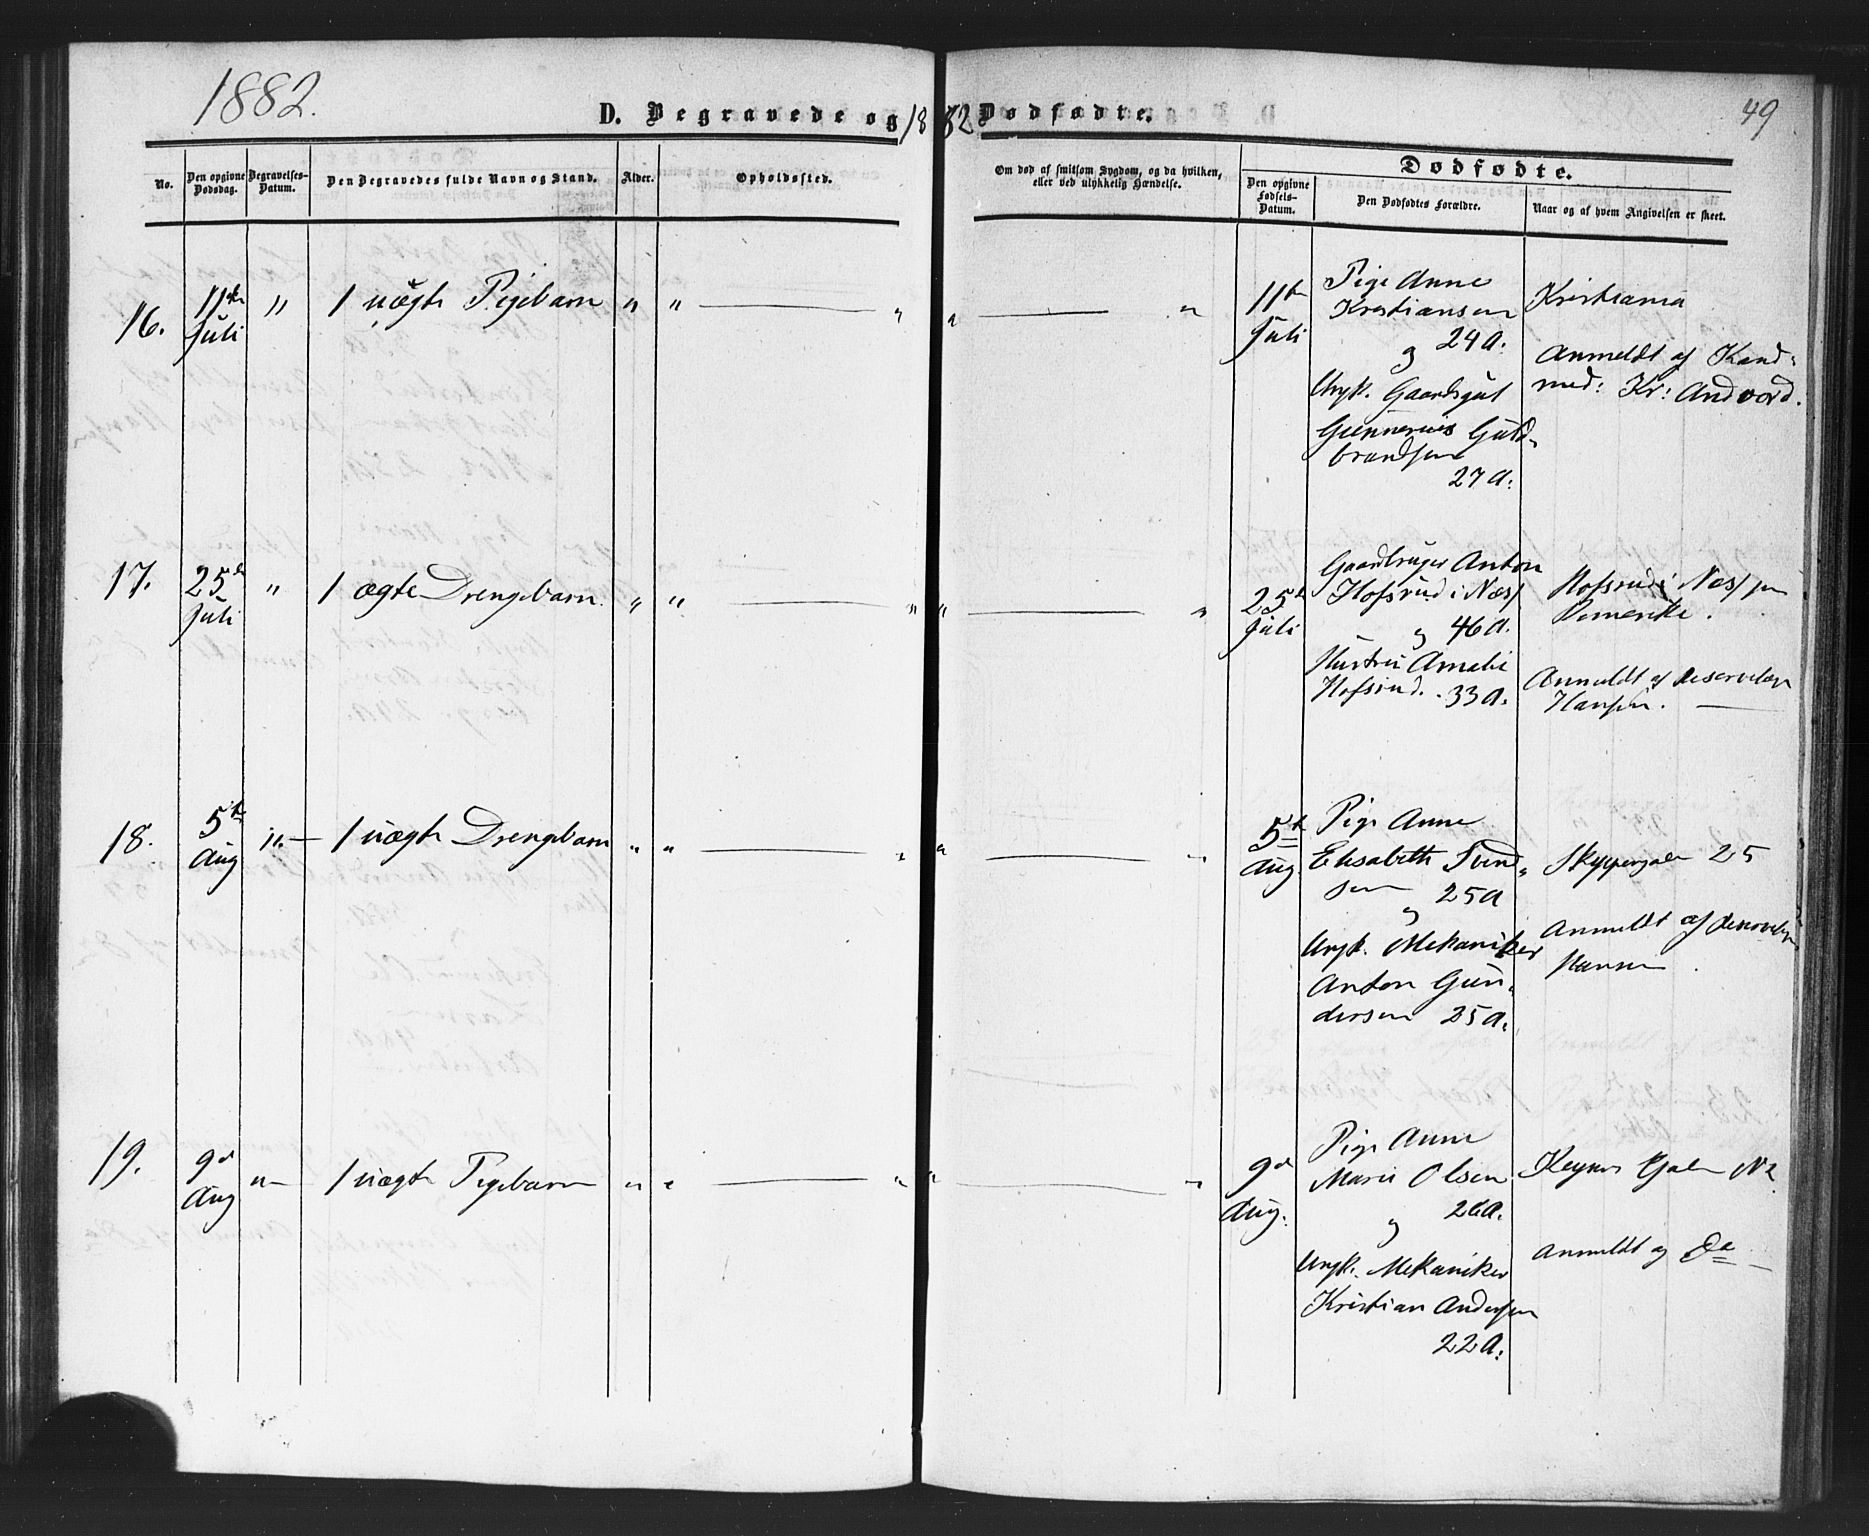 1882.
D. Begravede og 1882 Dødfødte.
49
No.
Den opgivne Dødsdag.
Begravelses-Datum.
Den Begravedes fulde Navn og Stand.
Alder.
Opholdssted.
Om død af smitsom Sygdom, og da hvilken,
eller ved ulykkelig Hændelse.
Dødfødte.
Den opgivne Fødsels-Datum.
Den Dødfødtes Forældre.
Naar og af hvem Angivelsen er skeet.
16.
11te
Juli
"
1 uægte Pigebarn
" " " " "
11te
Juli
Pige Anne
Kristiansen
24 A.
og
Ungk. Gaardsgut
Gunnerius Guld-
brandsen
27 A.
Kristiania
Anmeldt af Kand:
med: Kr: Andvord.
17.
25de
Juli
"
1 ægte Drengebarn.
" " " " "
25de
Juli
Gaardbruger Anton
Hofsrud i Næs
og 46 A.
Hustru Amalie
Hofsrud. 33 A.
Hofsrud i Næs paa
Romerike.
Anmeldt af Reservelæge
Hansen.
18.
5te
Aug
"
1 uægte Drengebarn
" " " " "
5te
Aug
Pige Anne
Elisabeth Svend-
sen 25 A
og
Ungk. Mekaniker
Anton Gun-
dersen 25 A.
Skippergaden 25
Anmeldt af Reservelæge
Hansen.
19.
9de
Aug
"
1 uægte Pigebarn
" " " " "
9de
Aug.
Pige Anne
Marie Olsen
26 A.
og
Ungk. Mekaniker
Kristian Andersen
22 A.
Keysers Gade N 2
Anmeldt af Do